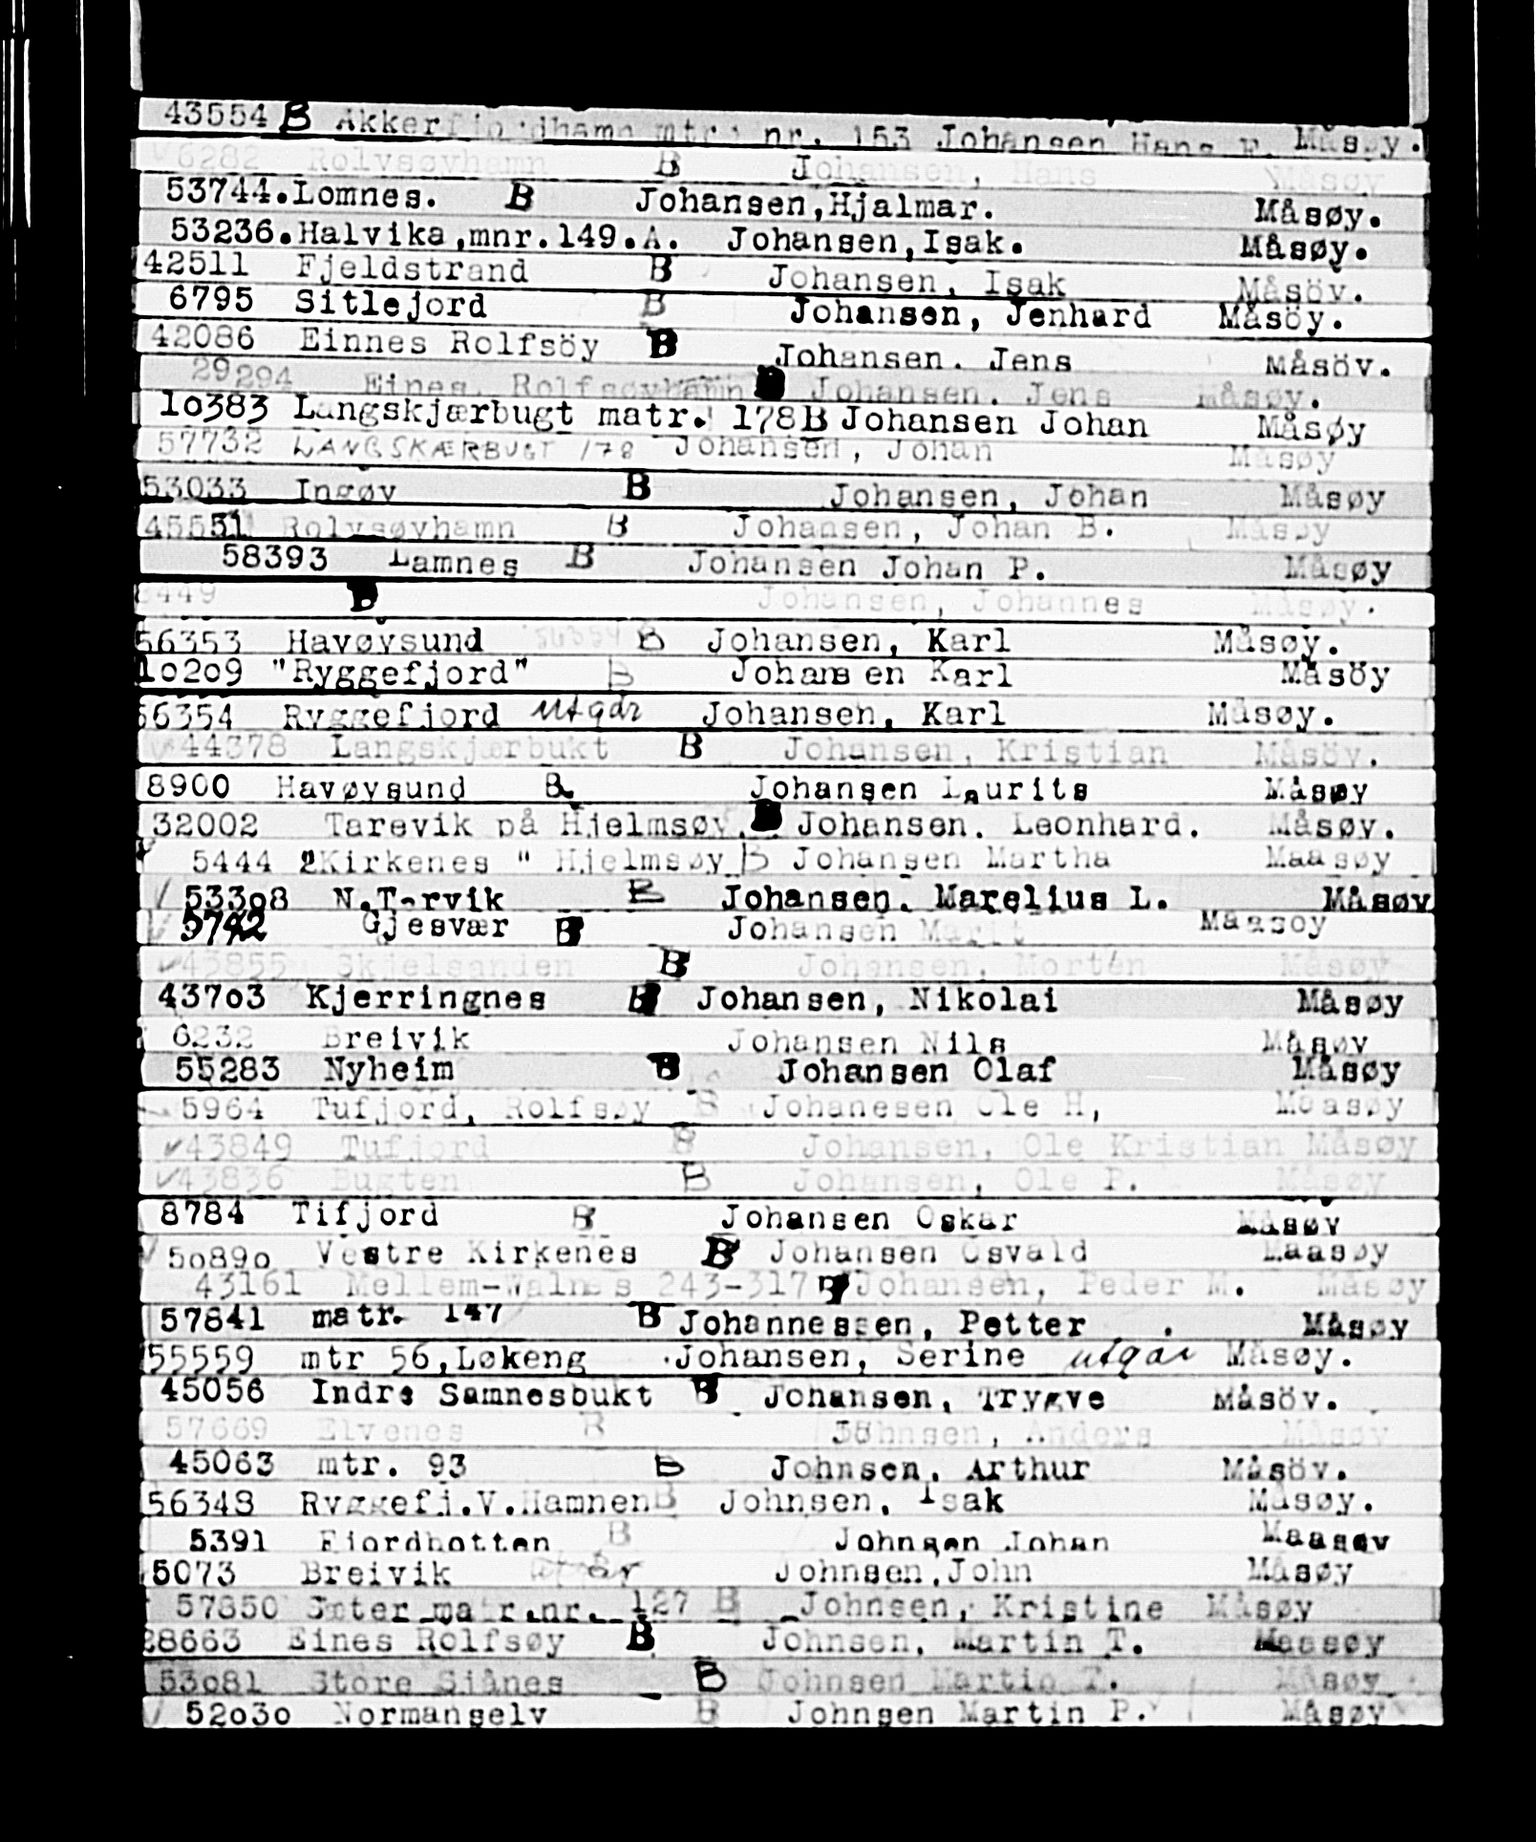 43554 B Akkerfjordhamn mtr. nr. 153 Johansen Hans Måsøy.
6282 Rolvsøyhamn B Johansen, Hans Måsøy
53744. Lomnes. B Johansen, Hjalmar. Måsøy.
53236. Halvika, mnr. 149. A. Johansen, Isak. Måsøy.
42511 Fjeldstrand B Johansen, Isak Måsöy.
6795 Sitlejord B Johansen, Jenhard Måsöy.
42086 Einnes Rolfsöy B Johansen. Jens Måsöv.
29294 Eines, Rolfsøyhamn Johansen. Jens Måsøy.
10383 Langskjærbugt matr. 178 B Johansen Johan Måsøy
57732 LANGSKÆRBUGT 178 Johansen, Johan Måsøy
53033 Ingøy B Johansen, Johan Måsøy
45551 Rolvsøyhamn B Johansen, Johan B. Måsøy
58393 Lamnes B Johansen Johan P. Måsøy
8449 B Johansen, Johannes Måsøy.
56353 Havøysund B Johansen, Karl Måsøy.
10209 "Ryggefjord" B Johansen Karl Måsöy
56354 Ryggefjord utgår Johansen, Karl Måsøy.
44378 Langskjærbukt B Johansen, Kristian Måsöy.
8900 Havøysund B Johansen Laurits Måsøy
32002 Tarevik på Hjelmsøy. Johansen. Leonhard. Måsøy.
5444 "Kirkenes " Hjelmsøy B Johansen Martha Maasøy
53308 N. Tarvik B Johansen. Marelius L. Måsøy
5742 Gjesvær B Johansen Marit Maasøy
43855 Skjelsanden B Johansen, Morten Måsøy
43703 Kjerringnes B Johansen, Nikolai Måsøy
6232 Breivik Johansen Nils Måsøy
55283 Nyheim B Johansen Olaf Måsøy
5964 Tufjord, Rolfsøy B Johanesen Ole H, Maasøy
43849 Tufjord B Johansen, Ole Kristian Måsøy
43836 Bugten B Johansen, Ole P. Måsøy
8784 Tifjord B Johansen Oskar Måsøy
50890 Vestre Kirkenes B Johansen Osvald Maasøy
43161 Mellem-Walnes 243-317 B Johansen, Peder M. Måsøy
57841 matr. 147 B Johannessen, Petter . Måsøy
55559 mtr 56, Løkeng Johansen, Serine utgår Måsøy.
45056 Indre Samnesbukt B Johansen, Trygve Måsöv.
57669 Elvenes B Johnsen, Anders Måsøy
45063 mtr. 93 B Johnsen, Arthur Måsöv.
56348 Ryggefj. V. Hamnen B Johnsen, Isak Måsøy.
5391 Fjordbotten B Johnsen Johan Maasøy
5073 Breivik utgår Johnsen, John Måsøy
57850 Sæter matr. nr. 127 B Johnsen, Kristine Måsøy
28663 Eines Rolfsøy B Johnsen, Martin T. Maasøy
53081 Store Sjånes B Johnsen Martin T. Måsøy
52030 Normanselv B Johnsen Martin P. Måsøy